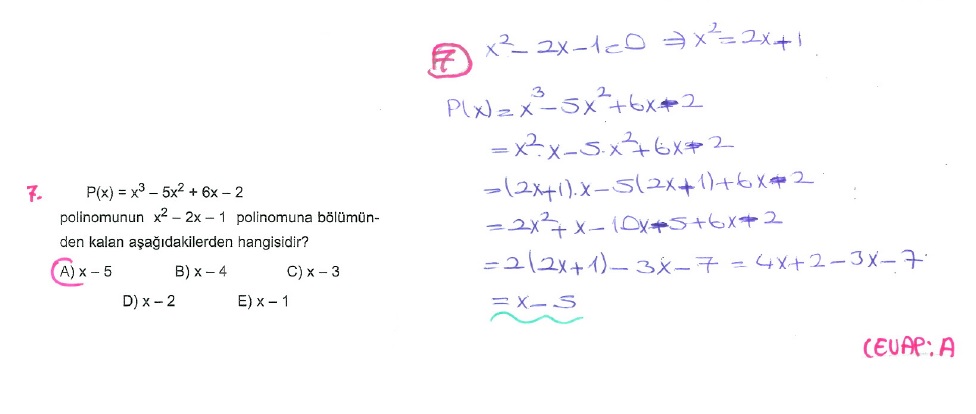 7. P(x) = x³ – 5x² + 6x – 2
polinomunun x² – 2x – 1 polinomuna bölümün-
den kalan aşağıdakilerden hangisidir?
A) x – 5 B) x – 4 C) x – 3
D) x – 2 E) x – 1
7 x² – 2x – 1 = 0 ⇒ x² = 2x + 1
P(x) = x³ – 5x² + 6x – 2
= x².x – 5.x² + 6x – 2
= (2x+1).x – 5(2x+1) + 6x – 2
= 2x² + x – 10x – 5 + 6x – 2
= 2(2x+1) – 3x – 7 = 4x + 2 – 3x – 7
= x – 5
CEVAP: A